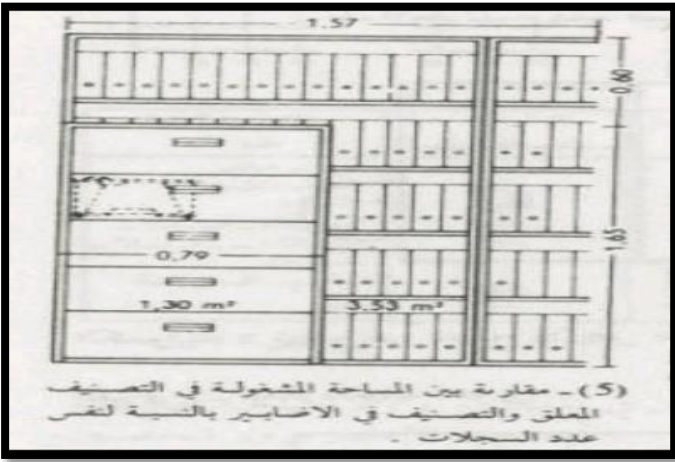 1.57
0,60
1,65
0,79
1,30 m²
3.53 m²
(5) ـ مقارنة بين المساحة المشغولة في التصنيف
المعلق والتصنيف في الاضابير بالنسبة لنفس
عدد السجلات .